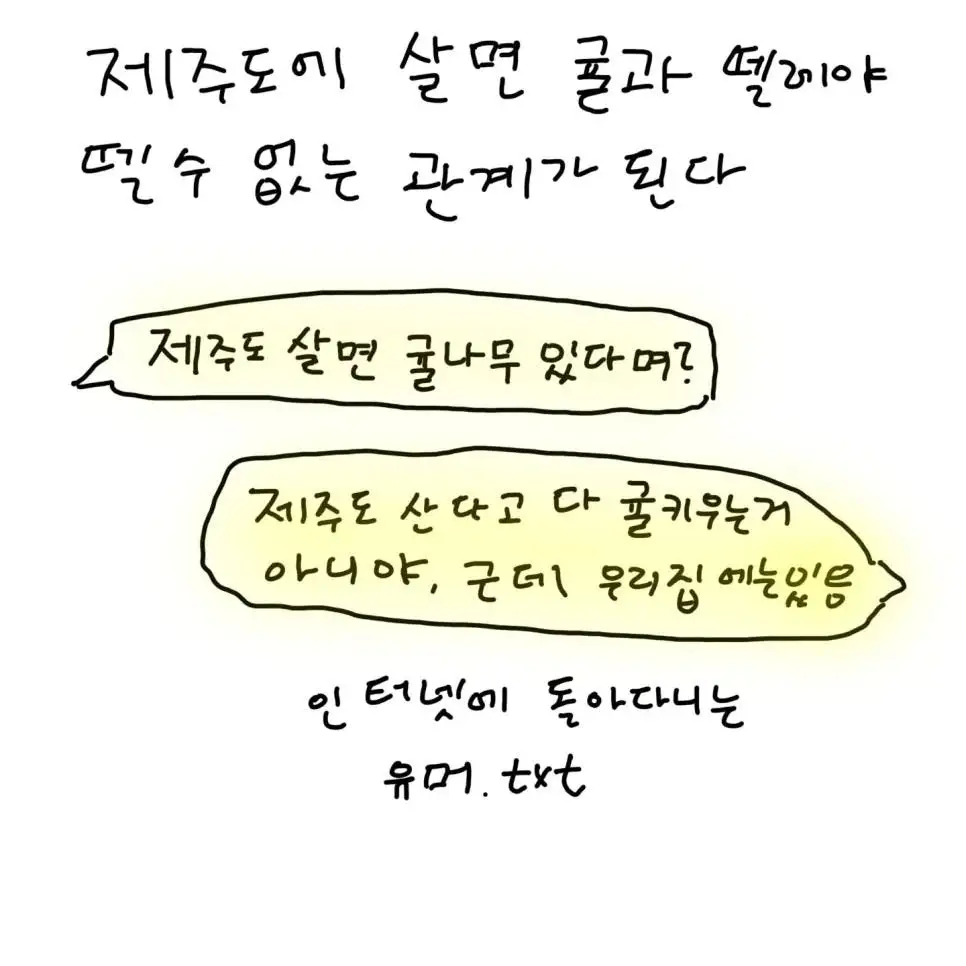 제주도에 살면 귤과 뗄레야
뗄 수 없는 관계가 된다
제주도 살면 귤나무 있다며?
제주도 산다고 다 귤키우는거
아니야, 근데 우리집에는있음
인터넷에 돌아다니는
유머.txt